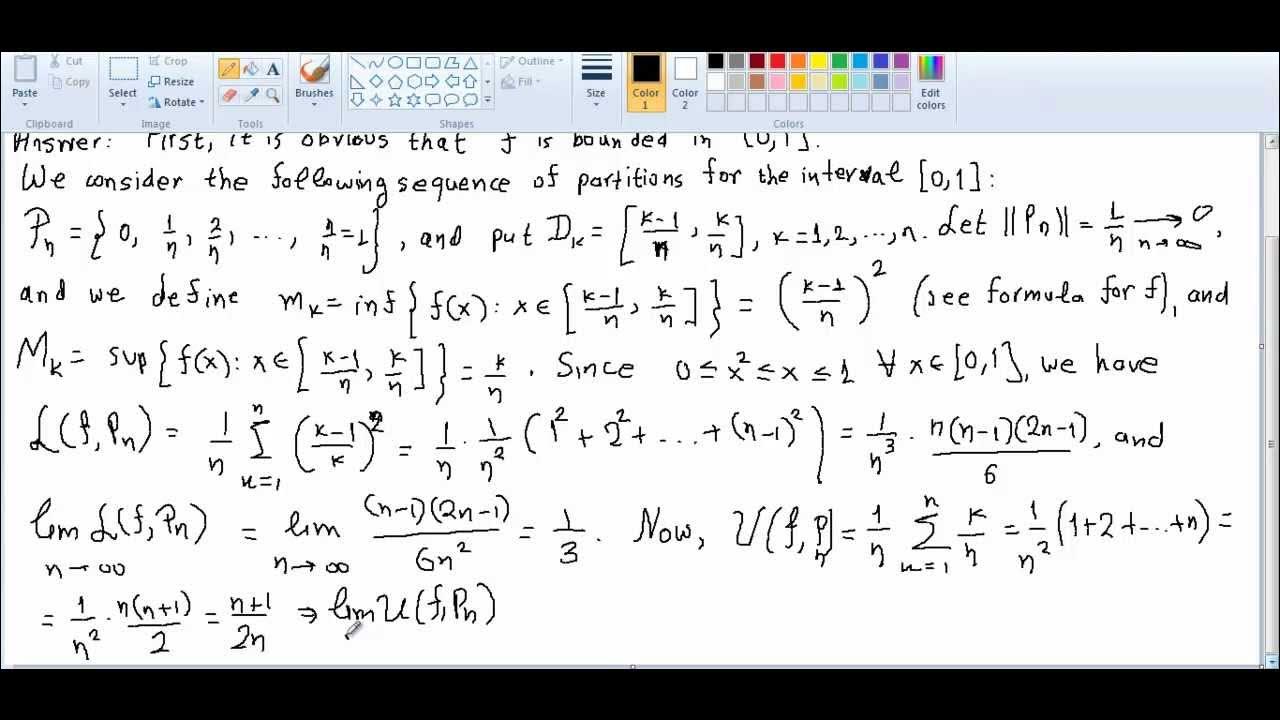 Cut
Copy
Paste
Clipboard
Crop
Resize
Rotate
Select
Image
A
Tools
Brushes
Outline
Fill
Shapes
Size
Color 1
Color 2
Edit colors
Colors
Answer: First, it is obvious that f is bounded in [0,1].
We consider the following sequence of partitions for the interval [0,1]:
Pₙ = {0, 1/n, 2/n, ..., n/n = 1}, and put Dₖ = [(k-1)/n, k/n], k=1,2,...,n. Let ‖Pₙ‖ = 1/n → 0, n→∞
and we define mₖ = inf{f(x): x∈[(k-1)/n, k/n]} = ((k-1)/n)² (see formula for f), and
Mₖ = sup{f(x): x∈[(k-1)/n, k/n]} = k/n. Since 0 ≤ x² ≤ x ≤ 1 ∀ x∈[0,1], we have
L(f,Pₙ) = 1/n ∑ₖ₌₁ⁿ ((k-1)/k)² = 1/n · 1/n² (1² + 2² + ... + (n-1)²) = 1/n³ · n(n-1)(2n-1)/6, and
lim n→∞ L(f,Pₙ) = lim n→∞ (n-1)(2n-1)/6n² = 1/3. Now, U(f,Pₙ) = 1/n ∑ₖ₌₁ⁿ k/n = 1/n² (1+2+...+n) =
= 1/n² · n(n+1)/2 = (n+1)/2n ⇒ lim U(f,Pₙ)